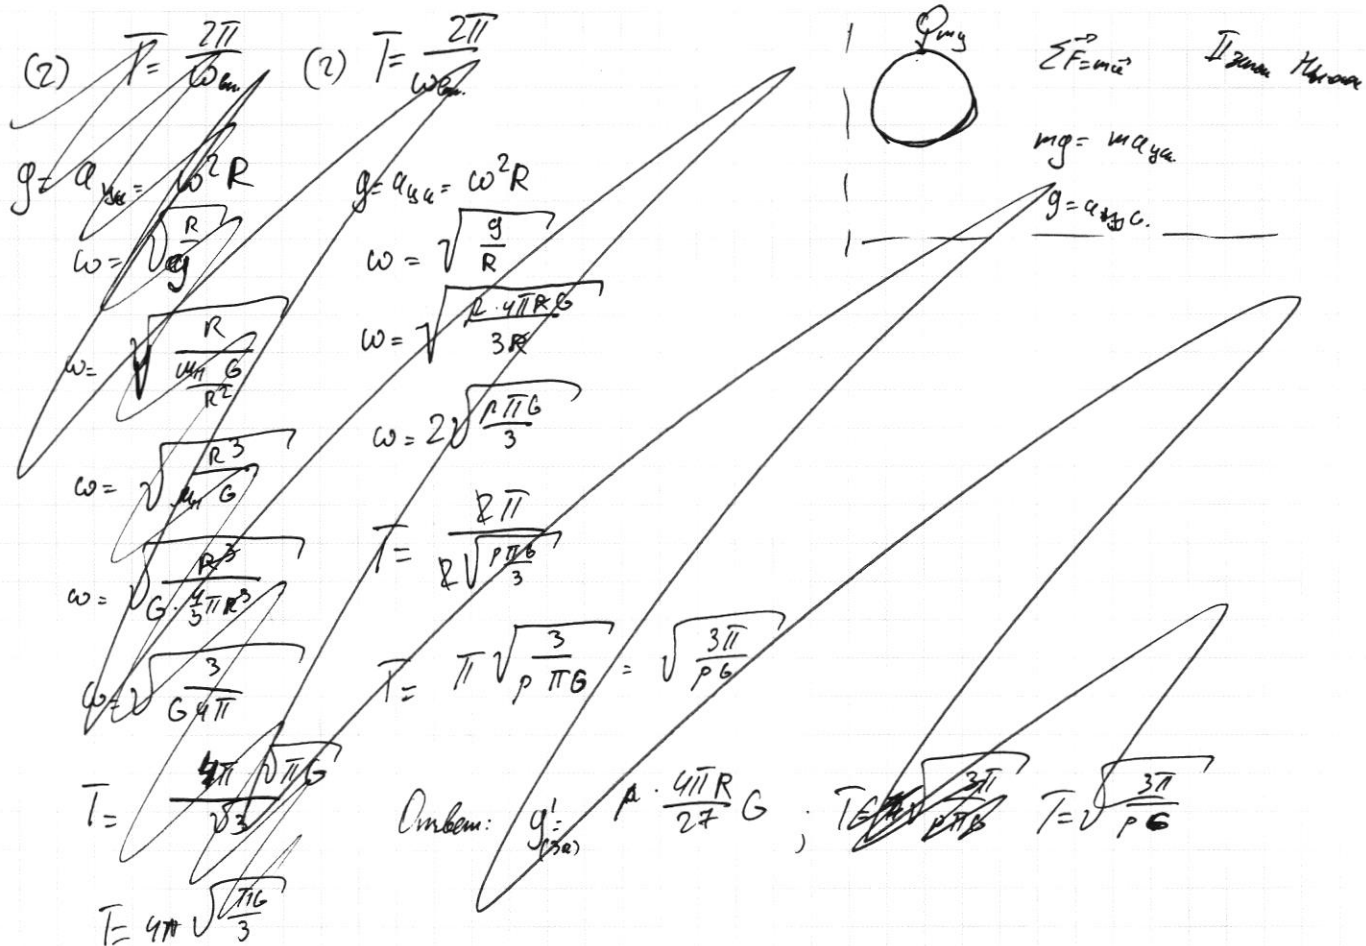 (2) T = 2π/ω вт.
g = a цс = ω²R
ω = √(R/g)
ω = √(R/(MпG/R²))
ω = √(R³/(Mп G))
ω = √(R³/(G·4/3πR³))
ω = √(3/(G4π))
T = 4π√πG/√3
T = 4π√(πG/3)
(2) T = 2π/ω вт.
g = a цс = ω²R
ω = √(g/R)
ω = √(ρ·4πRG/3R)
ω = 2√(ρπG/3)
T = 2π/(2√(ρπG/3))
T = π√(3/(ρπG)) = √(3π/(ρG))
Ответ: g'(3R) = ρ·4πR/27 G ; T = √(3π/(ρG))
mg
ΣF⃗=ma⃗ II закон Ньютона
mg = ma цс.
g = a цс.